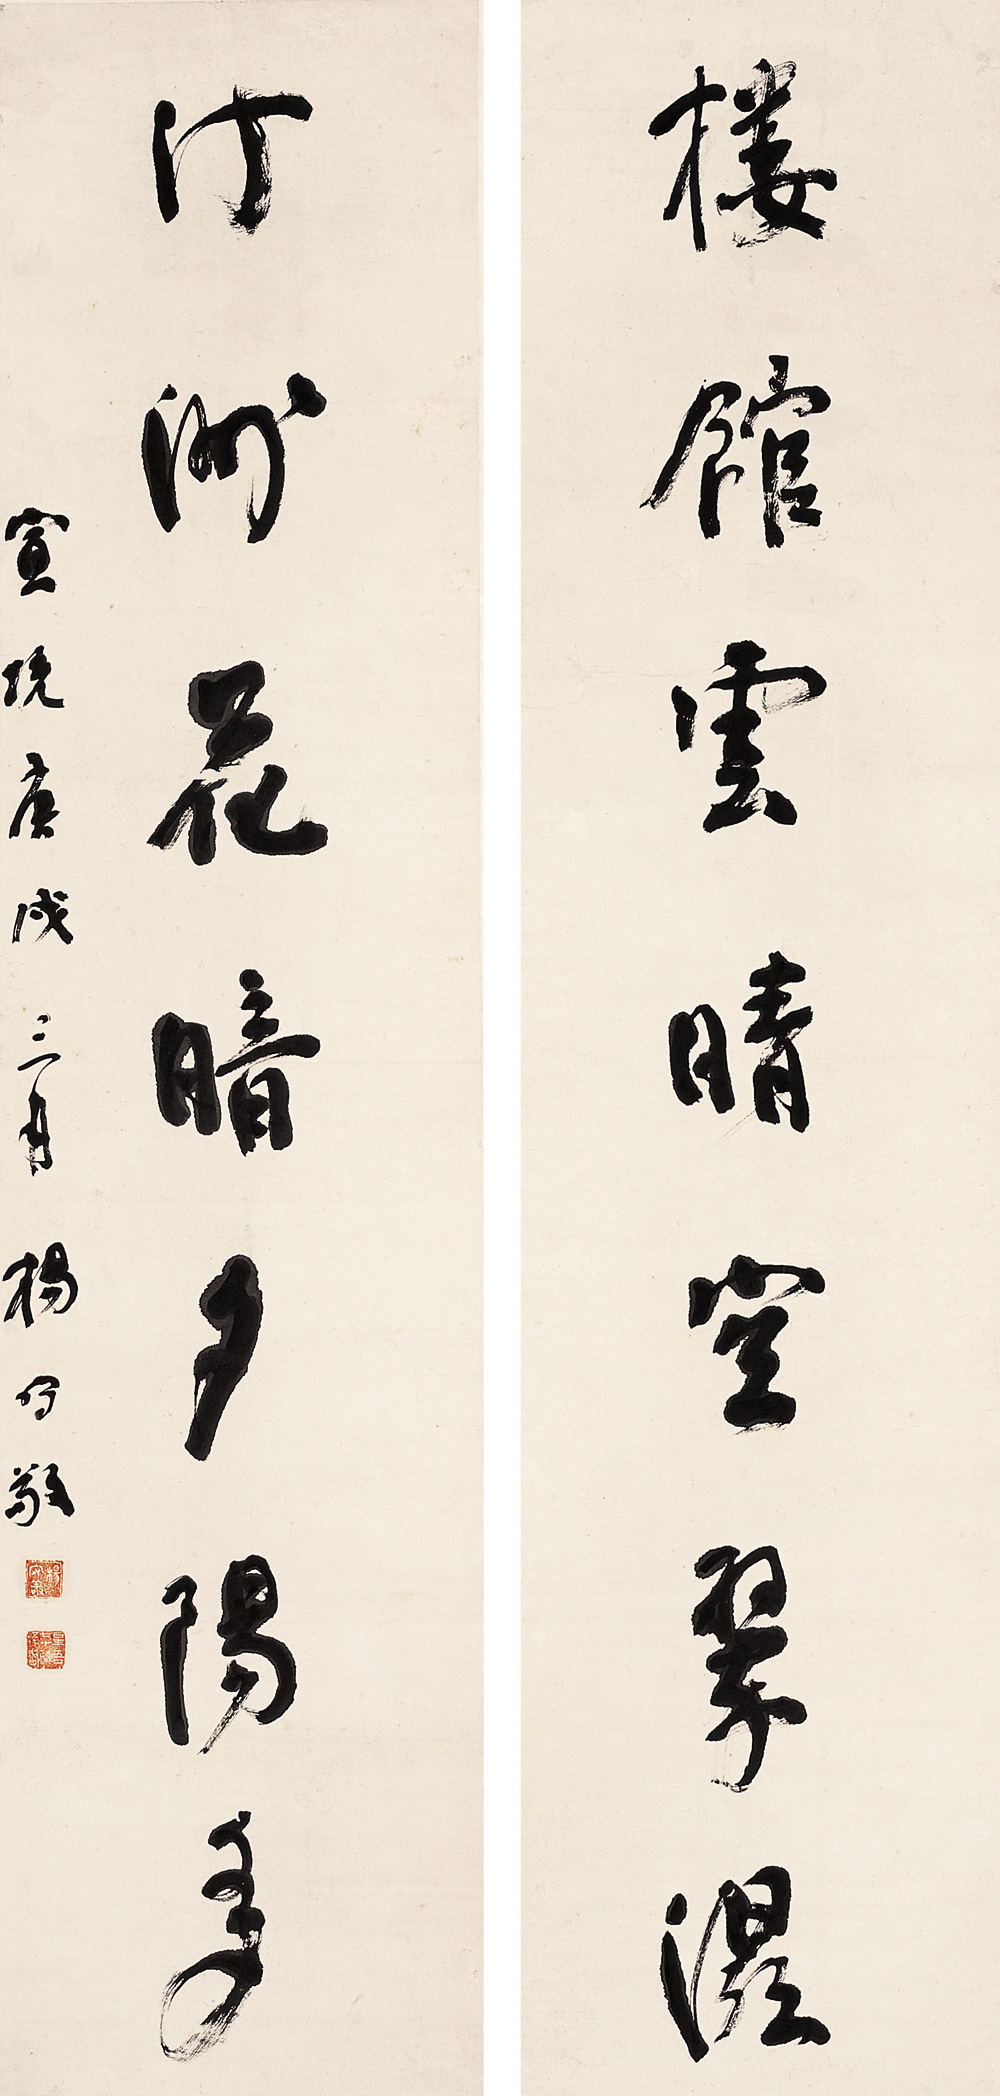 樓館雲晴空翠濕
汀洲花暗夕陽多
宣統庚戌三月楊守敬